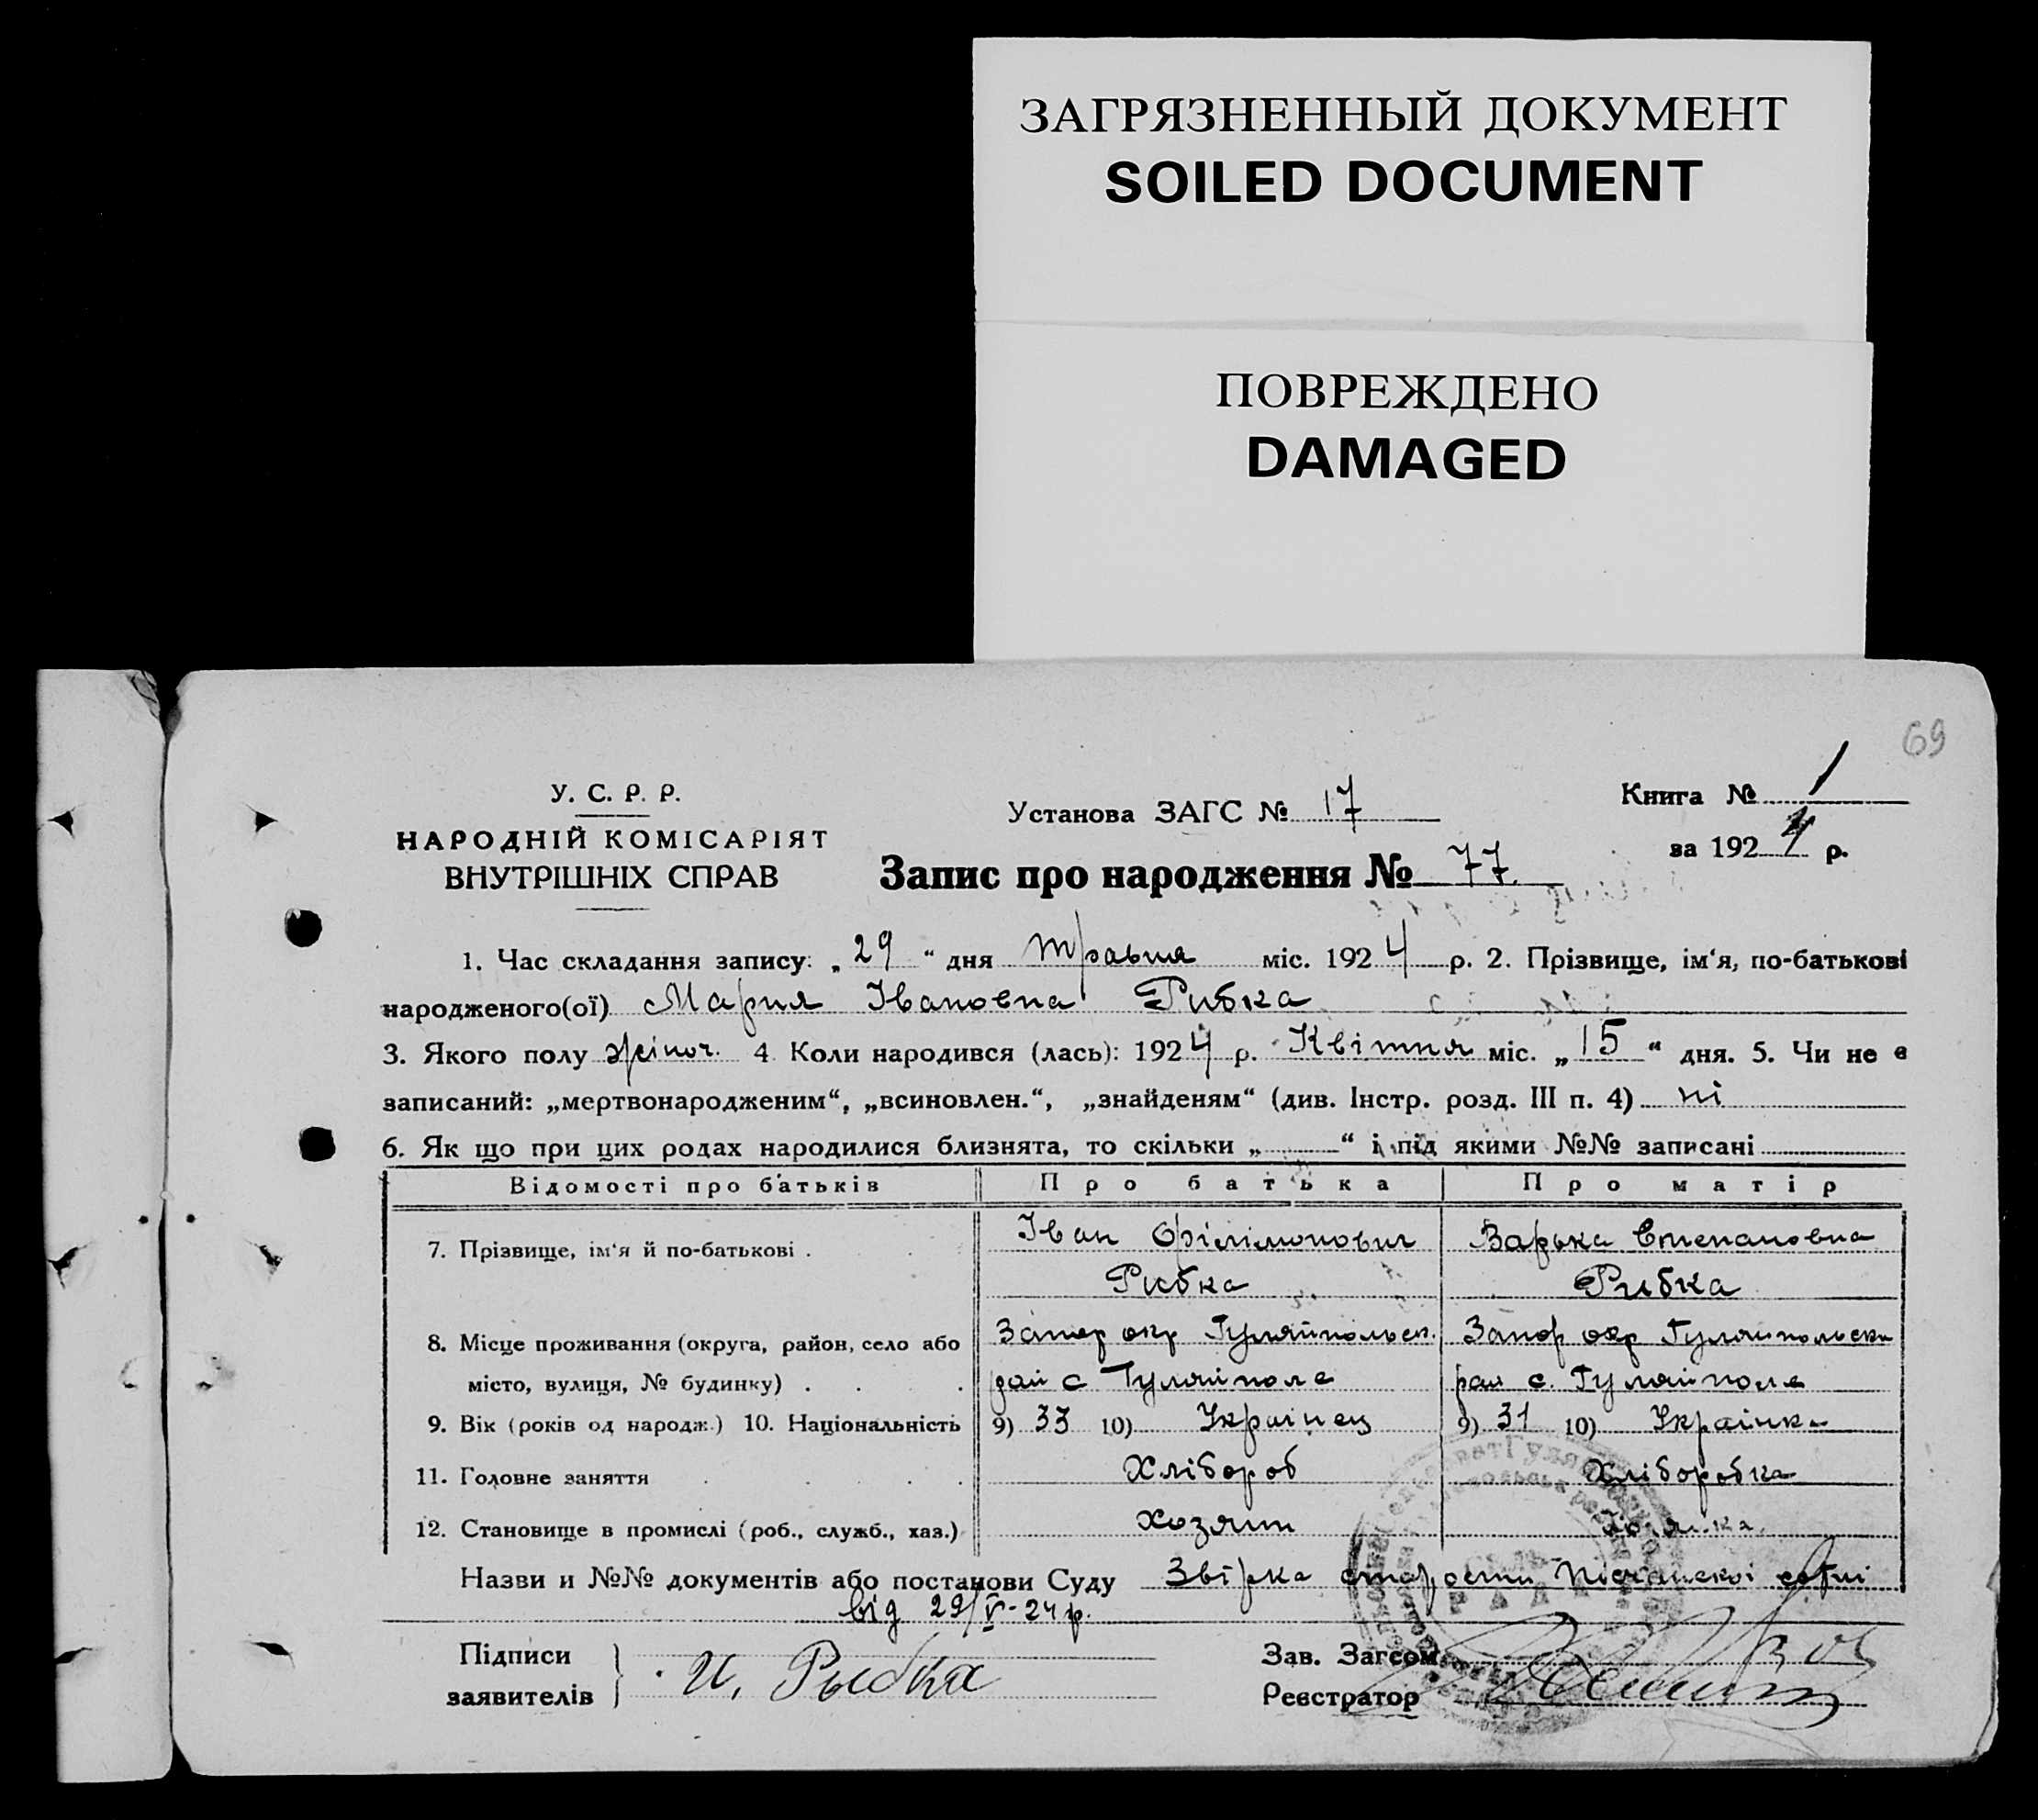 ЗАГРЯЗНЕННЫЙ ДОКУМЕНТ
SOILED DOCUMENT
ПОВРЕЖДЕНО
DAMAGED
69
У. С. Р. Р.
НАРОДНІЙ КОМІСАРІЯТ
ВНУТРІШНІХ СПРАВ
Установа ЗАГС № 17
Книга № 1
за 1924 р.
Запис про народження № 77.
1. Час складання запису: „29“ дня травня міс. 1924 р. 2. Прізвище, ім‘я, по-батькові
народженого(ої) Мария Івановна Рибка
3. Якого полу жіноч. 4. Коли народився (лась): 1924 р. Квітня міс. „15“ дня. 5. Чи не є
записаний: „мертвонародженим“, „всиновлен.“, „знайденям“ (див. Інстр. розд. III п. 4) ні
6. Як що при цих родах народилися близнята, то скільки „ “ і під якими №№ записані
Відомості про батьків Про батька Про матір
7. Прізвище, ім‘я й по-батькові . Іван Філімонович Варька Степановна
Рибка Рибка
8. Місце проживання (округа, район, село або Запор окр Гуляйпольск. Запор окр Гуляйпольски
місто, вулиця, № будинку) . . . рай с Гуляйполе рай с. Гуляйполе
9. Вік (років од народж.) 10. Національність 9) 33 10) Українец 9) 31 10) Українка
11. Головне заняття . . . . Хлібороб Хліборобка
12. Становище в промислі (роб., служб., хаз.) Хозяин Хозяйка
Назви и №№ документів або постанови Суду Звірка старости Пісчанскоі сотні
від 29/V-24 р.
Підписи
заявителів И. Рыбка
Зав. Загсом
Реєстратор
РАДА